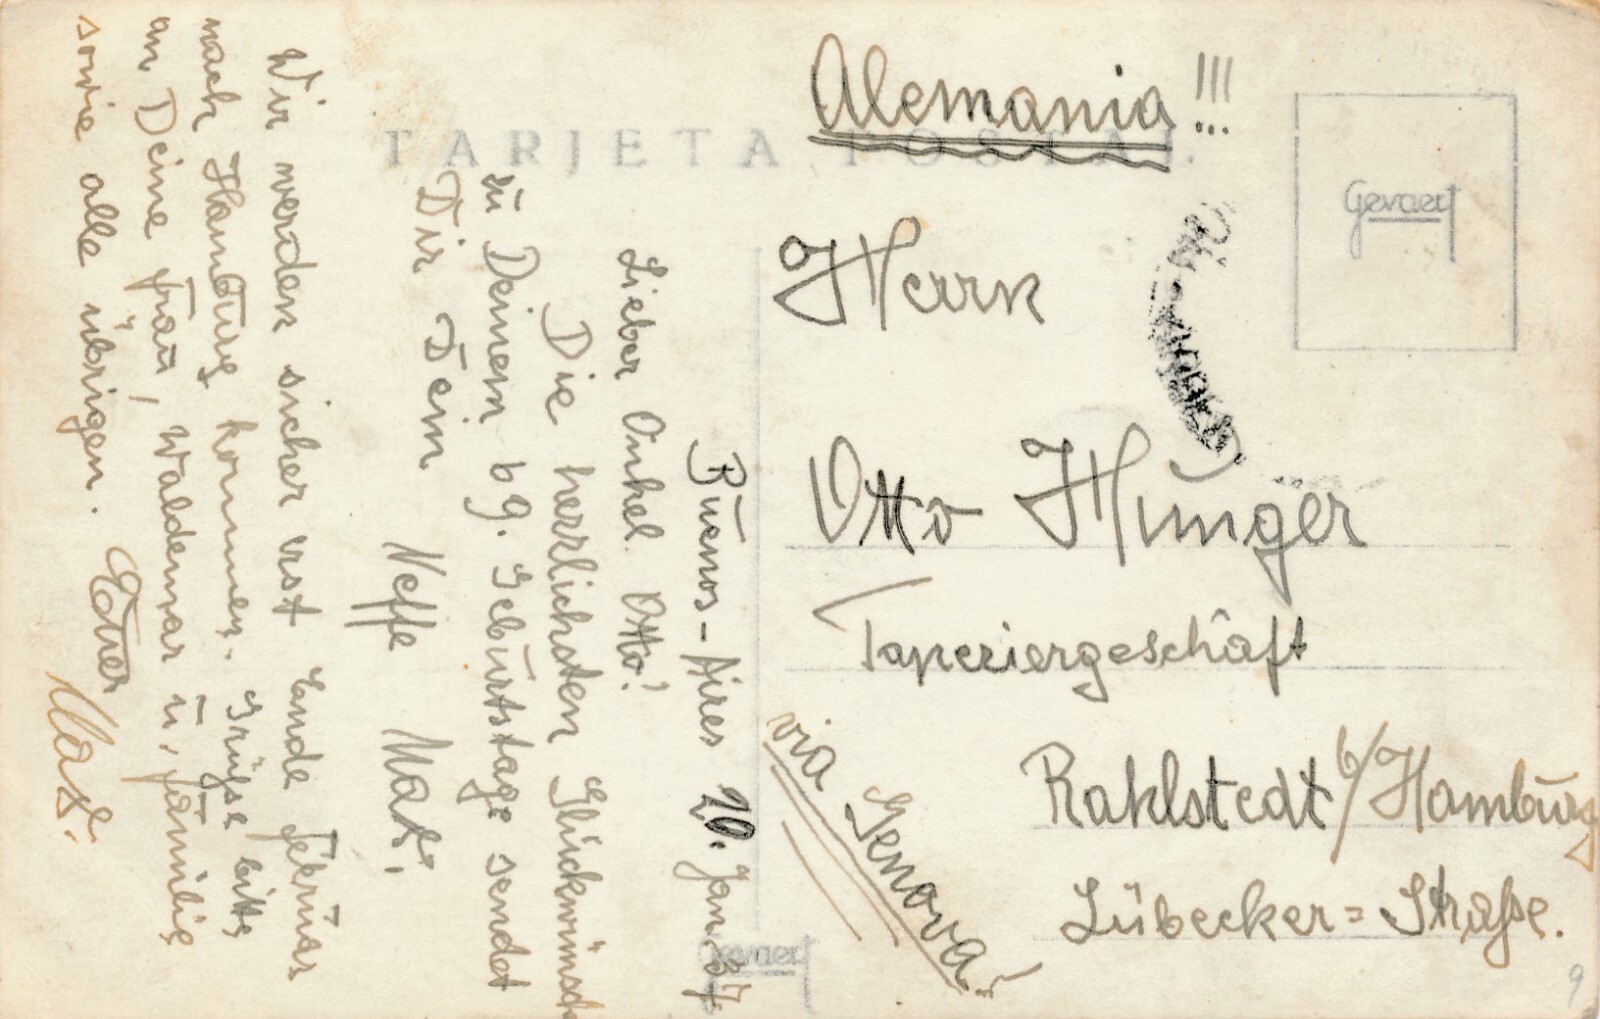 TARJETA POSTAL
Alemania!!!
Gevaert
Herrn
Otto Hunger
Tapeziergeschäft
Rahlstedt b/Hamburg
Lübecker=Straße.
via Genova!
Buenos-Aires 20. Jan. 37
Lieber Onkel Otto!
Die herrlichsten Glückwünsche
zu Deinem 69. Geburtstage sendet
Dir Dein
Neffe Mat.
Wir werden sicher erst Ende Februar
nach Hamburg kommen. Grüße bitte
an Deine Frau, Waldemar u. Familie
sowie alle übrigen. Euer
Mat.
Gevaert
9